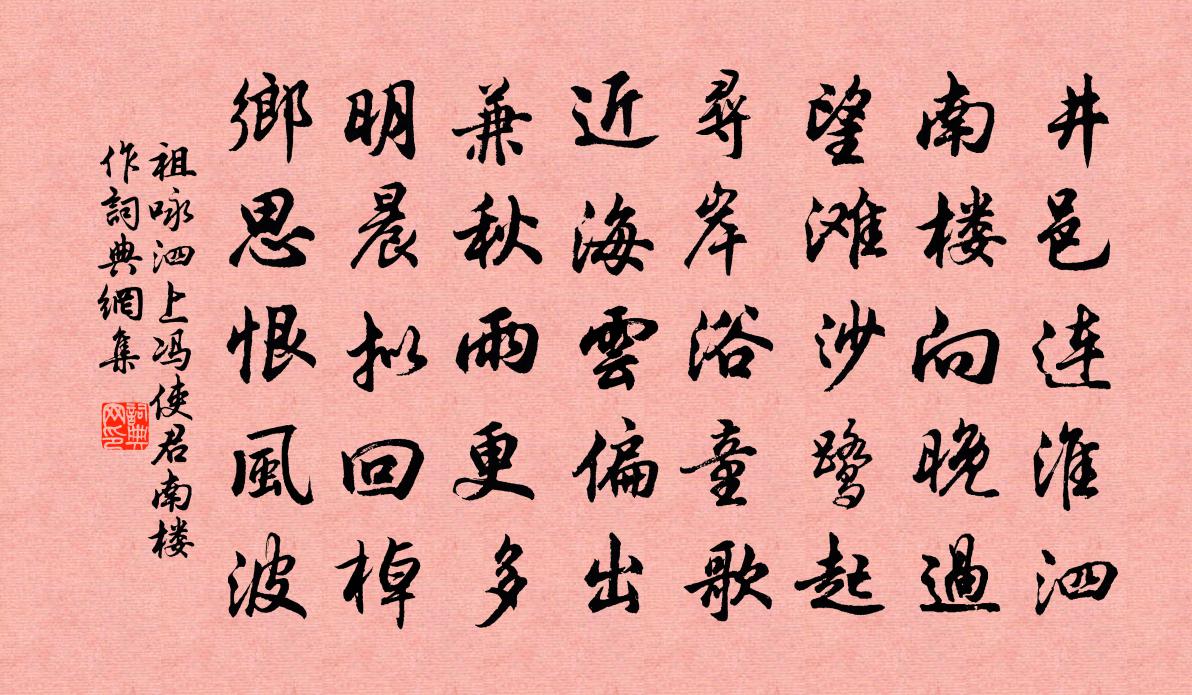 井邑连淮泗
南楼向晚過
望滩沙鹭起
尋岸浴童歌
近海雲偏出
兼秋雨更多
明晨拟回棹
鄉思恨風波
祖咏泗上冯使君南楼
作詞典網集
詞典网印